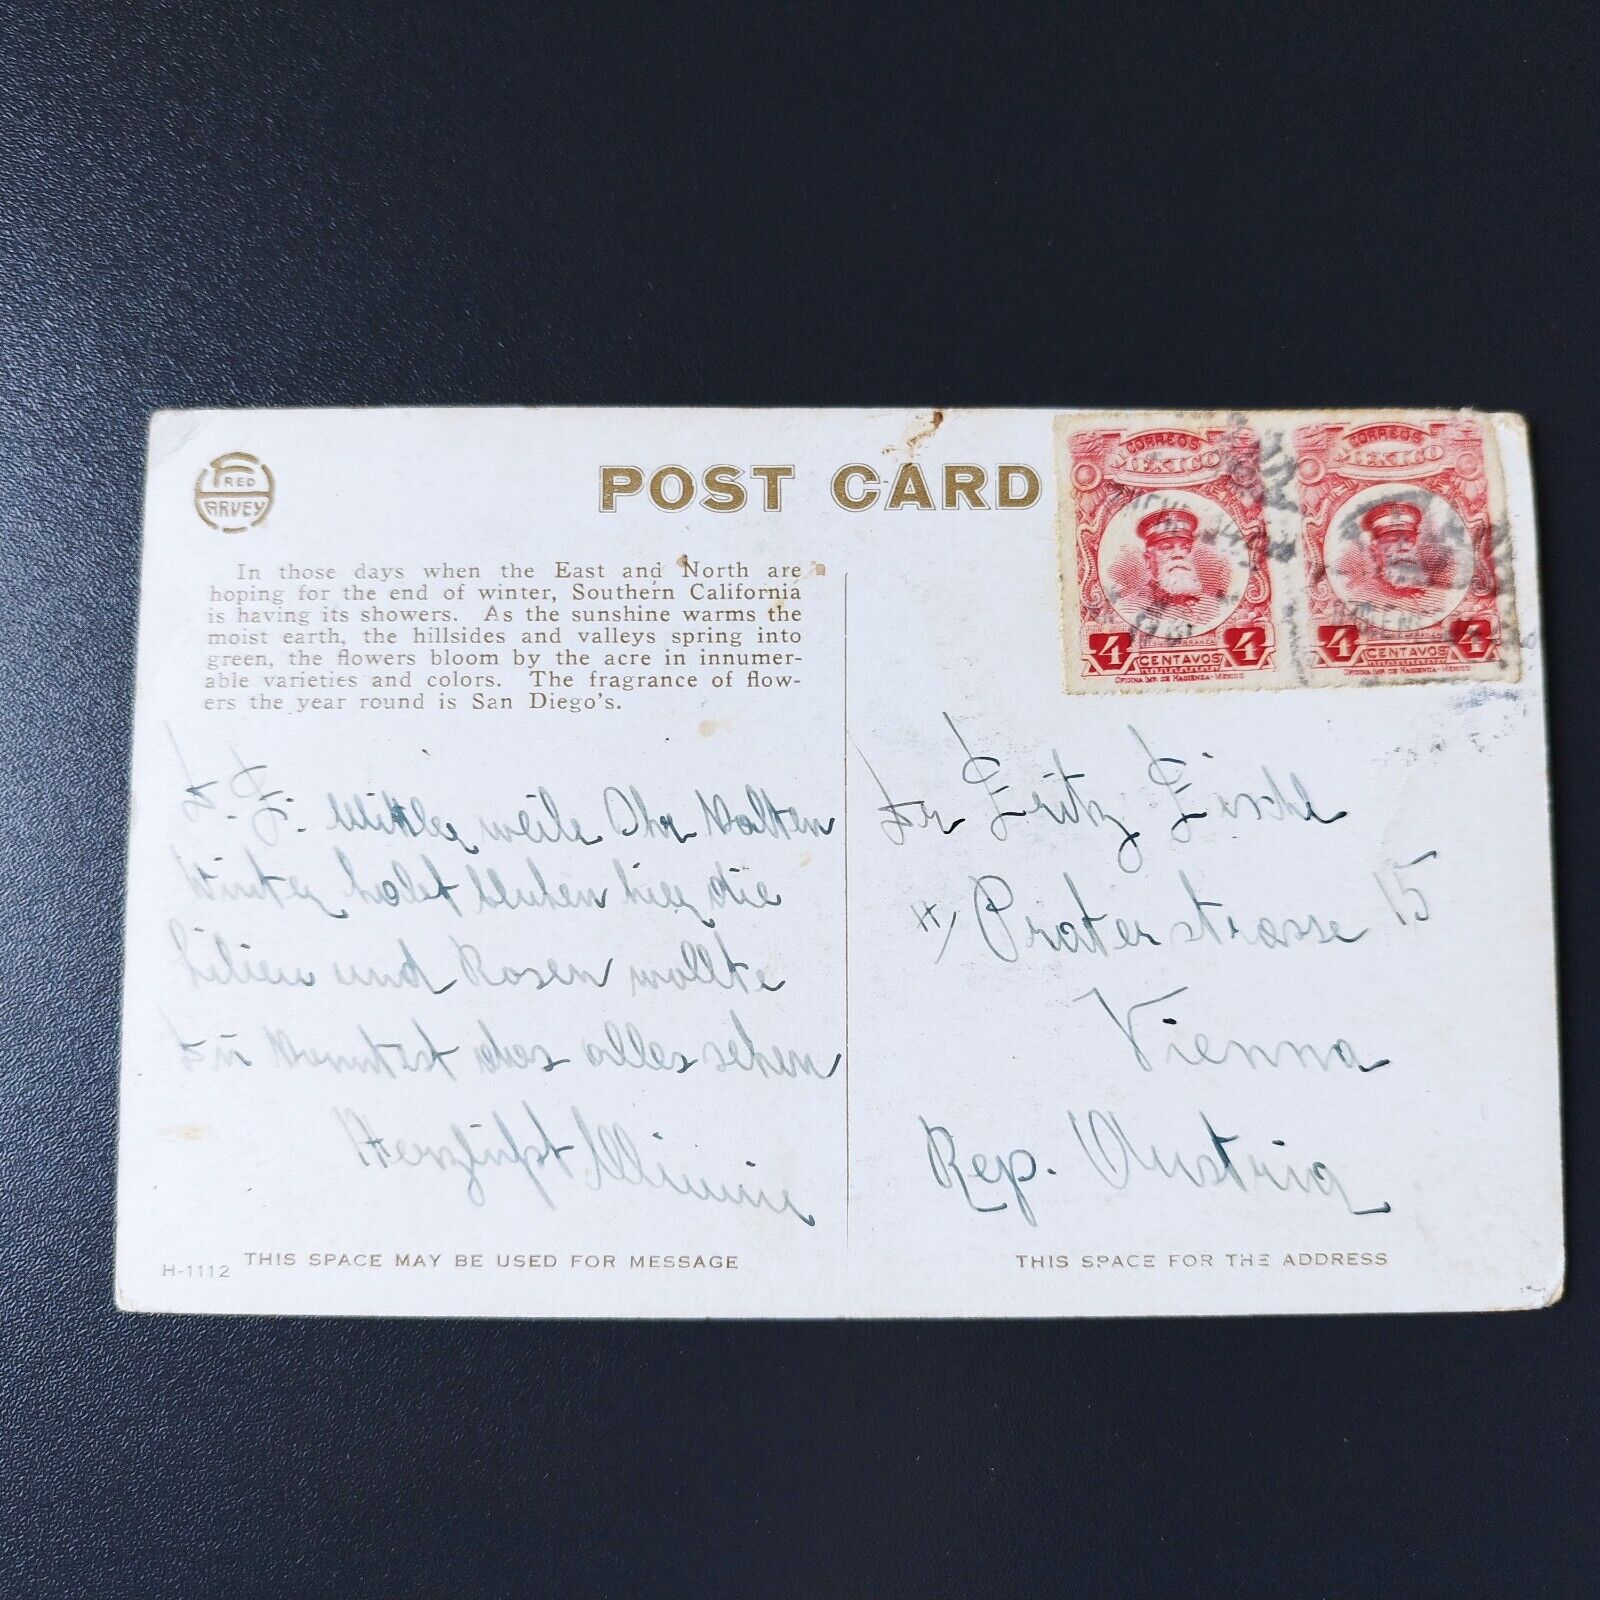 FRED
HARVEY
POST CARD
In those days when the East and North are
hoping for the end of winter, Southern California
is having its showers. As the sunshine warms the
moist earth, the hillsides and valleys spring into
green, the flowers bloom by the acre in innumer-
able varieties and colors. The fragrance of flow-
ers the year round is San Diego's.
L. F. Mittlerweile Ihr kalten
Winter habt bluhen hier die
Lilien und Rosen wollte
Du konntest das alles sehen
Herzlichst
H-1112 THIS SPACE MAY BE USED FOR MESSAGE
CORREOS
MEXICO
4 CENTAVOS 4
OFICINA IMP. DE HACIENDA-MEXICO
CORREOS
MEXICO
4 CENTAVOS 4
OFICINA IMP. DE HACIENDA-MEXICO
Fritz
Praterstrasse 15
Vienna
Rep. Austria
THIS SPACE FOR THE ADDRESS